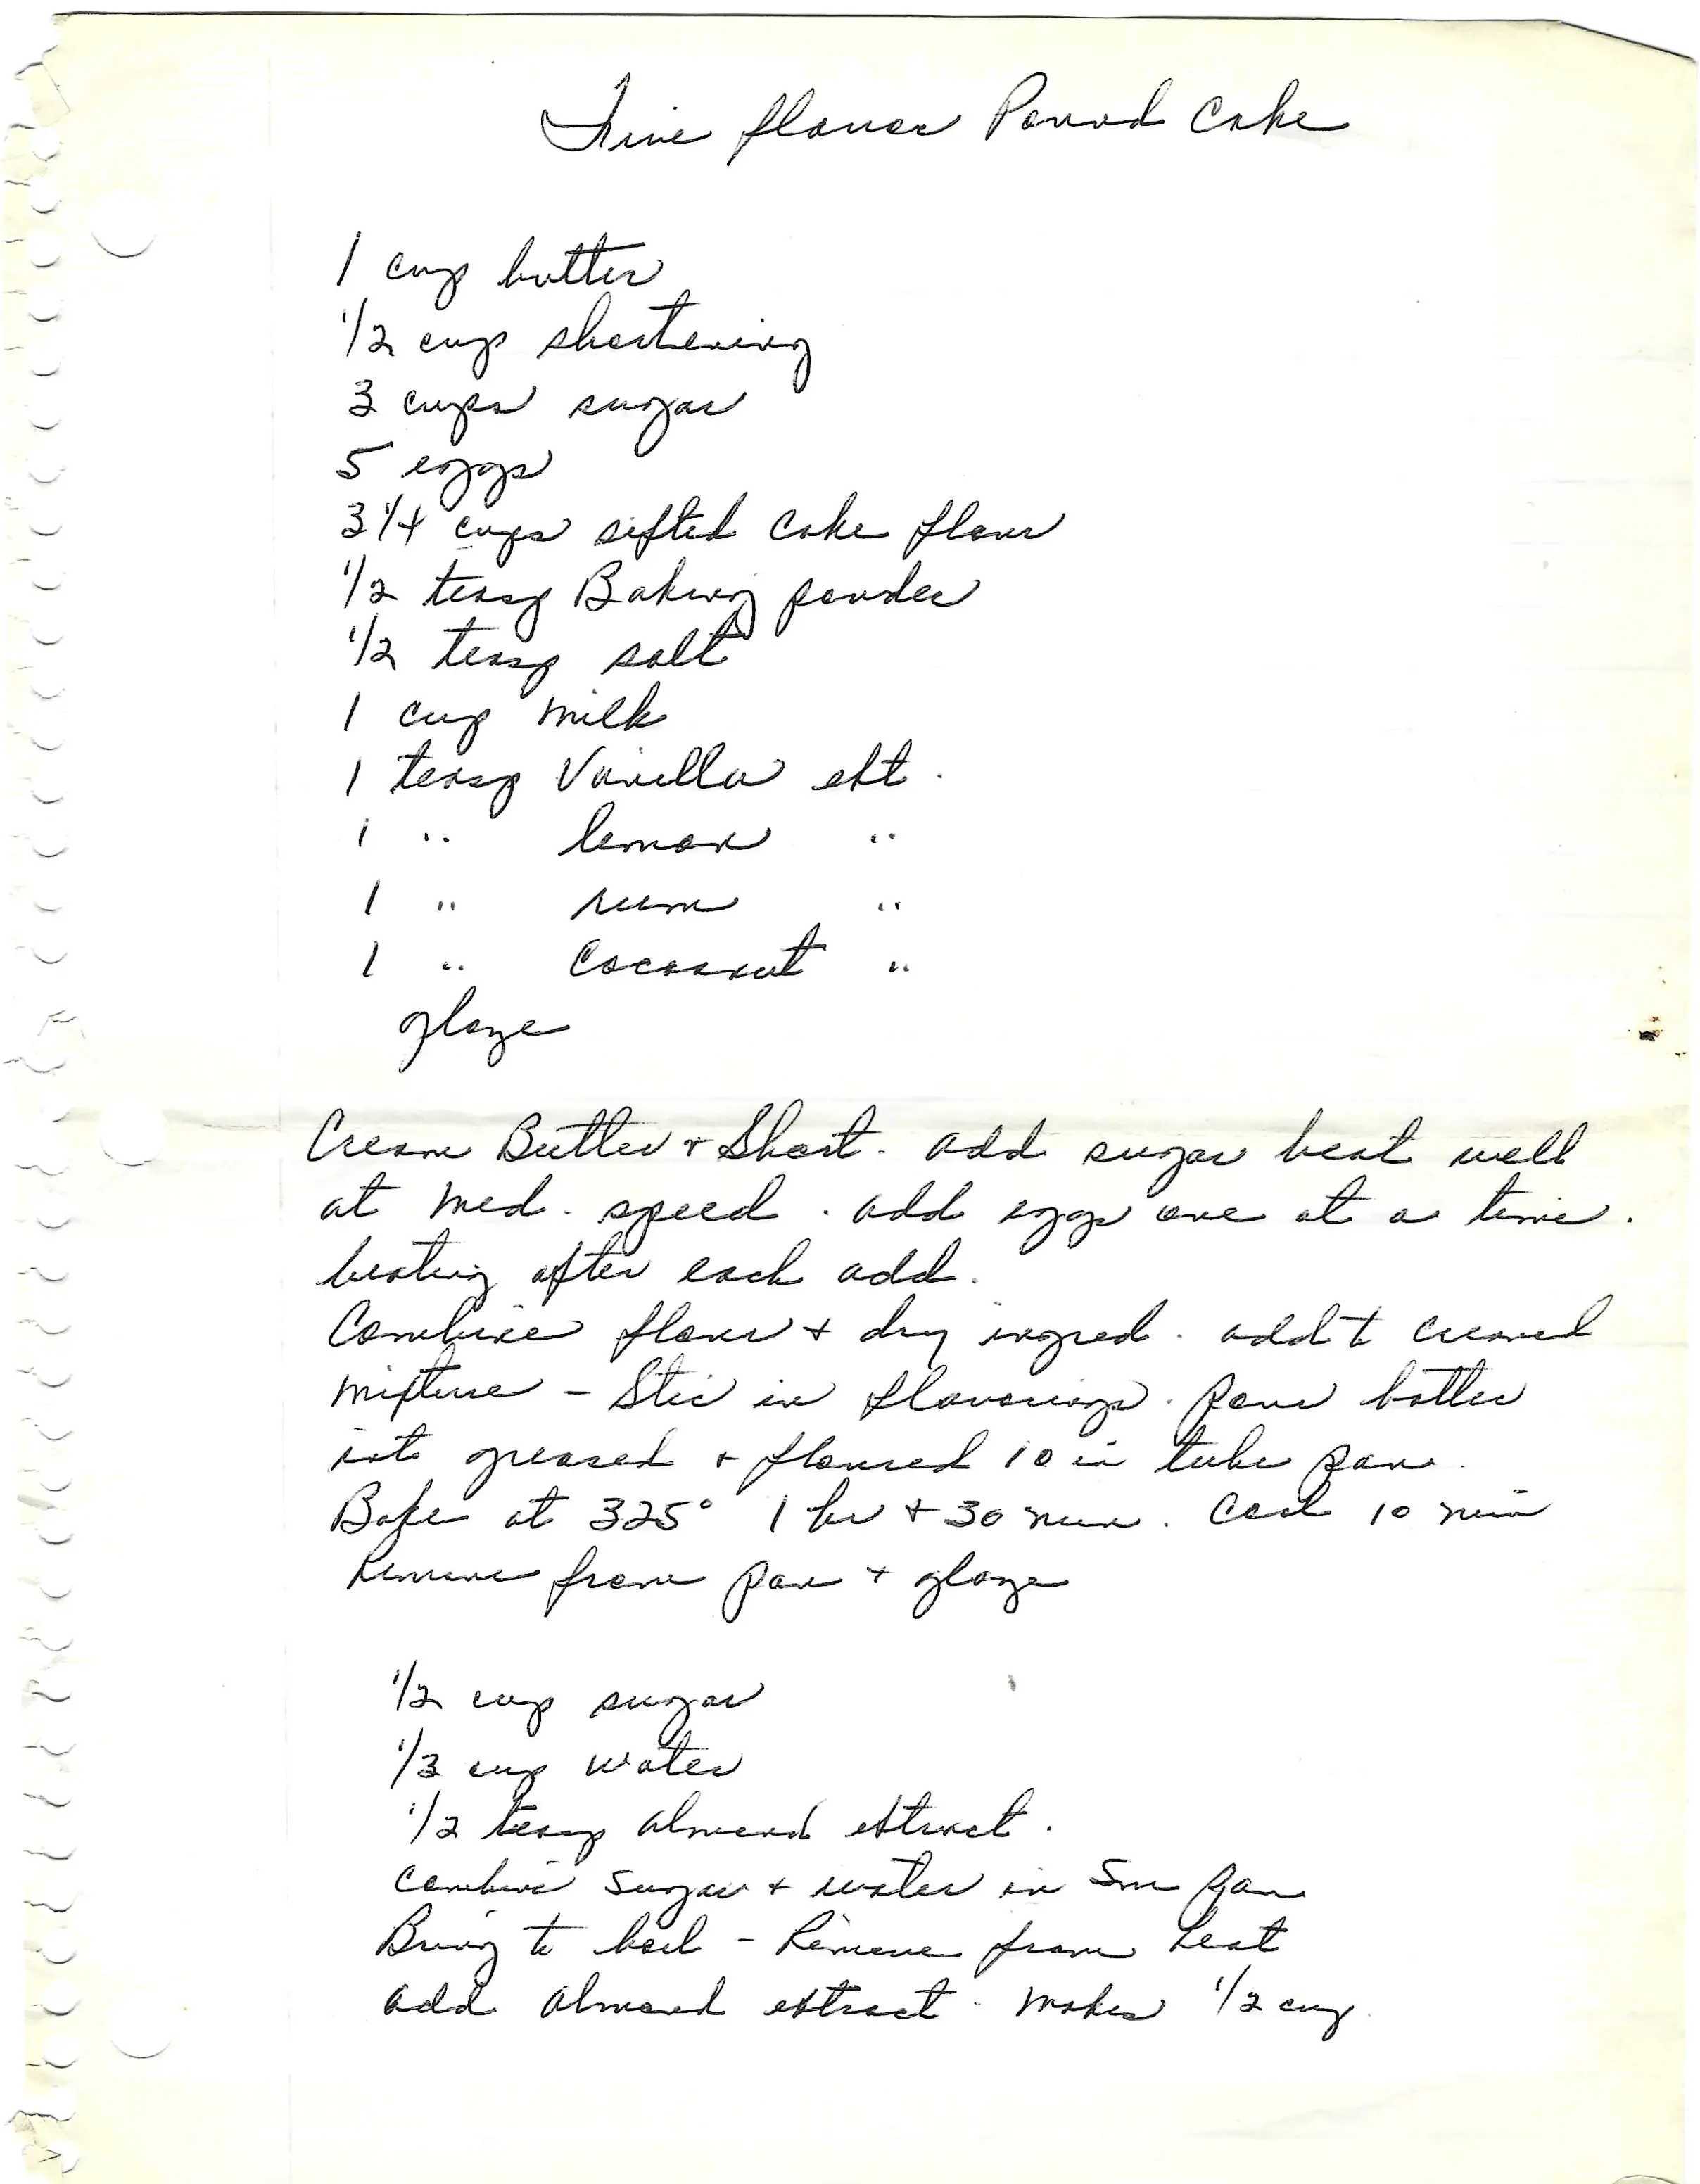 Five flavor Pound Cake
1 cup butter
1/2 cup shortening
3 cups sugar
5 eggs
3 1/4 cups sifted cake flour
1/2 teasp Baking powder
1/2 teasp salt
1 cup milk
1 teasp Vanilla ext.
1 " lemon "
1 " rum "
1 " Cocoanut "
glaze
Cream Butter + Short. add sugar beat well
at med. speed. add eggs one at a time.
beating after each add.
Combine flour + dry ingred. add t creamed
mixture - Stir in flavorings. pour batter
into greased + floured 10 in tube pan.
Bake at 325° 1 hr + 30 min. Cool 10 min
Remove from pan + glaze
1/2 cup sugar
1/3 cup water
1/2 teasp almond extract.
combine sugar + water in Sm pan
Bring to boil - Remove from heat
add almond extract. Makes 1/2 cup.